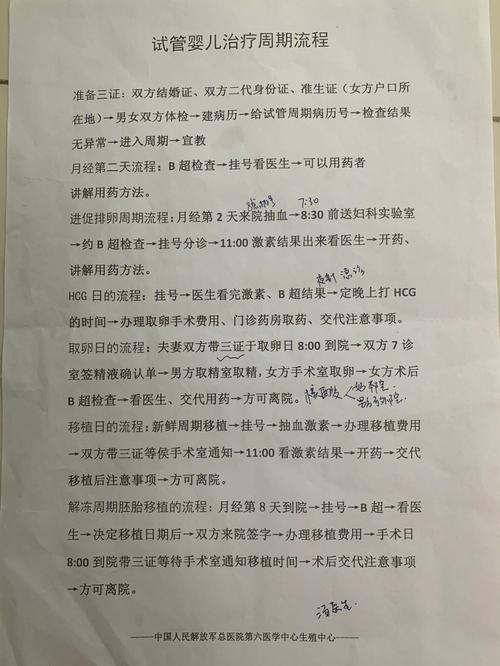 试管婴儿治疗周期流程
准备三证：双方结婚证、双方二代身份证、准生证（女方户口所
在地）→男女双方体检→建病历→给试管周期病历号→检查结果
无异常→进入周期→宣教
月经第二天流程：B 超检查→挂号看医生→可以用药者
讲解用药方法。
7:30
进促排卵周期流程：月经第 2 天来院抽血→8:30 前送妇科实验室
→约 B 超检查→挂号分诊→11:00 激素结果出来看医生→开药、
讲解用药方法。
HCG 日的流程：挂号→医生看完激素、B 超结果→定晚上打 HCG
的时间→办理取卵手术费用、门诊药房取药、交代注意事项。
取卵日的流程：夫妻双方带三证于取卵日 8:00 到院→双方 7 诊
室签精液确认单→男方取精室取精，女方手术室取卵→女方术后
B 超检查→看医生、交代用药→方可离院。
移植日的流程：新鲜周期移植→挂号→抽血激素→办理移植费用
→双方带三证等侯手术室通知→11:00 看激素结果→开药→交代
移植后注意事项→方可离院。
解冻周期胚胎移植的流程：月经第 8 天到院→挂号→B 超→看医
生→决定移植日期后→双方来院签字→办理移植费用→手术日
8:00 到院带三证等待手术室通知移植时间→术后交代注意事项
→方可离院。
汤医生
-----中国人民解放军总医院第六医学中心生殖中心-----